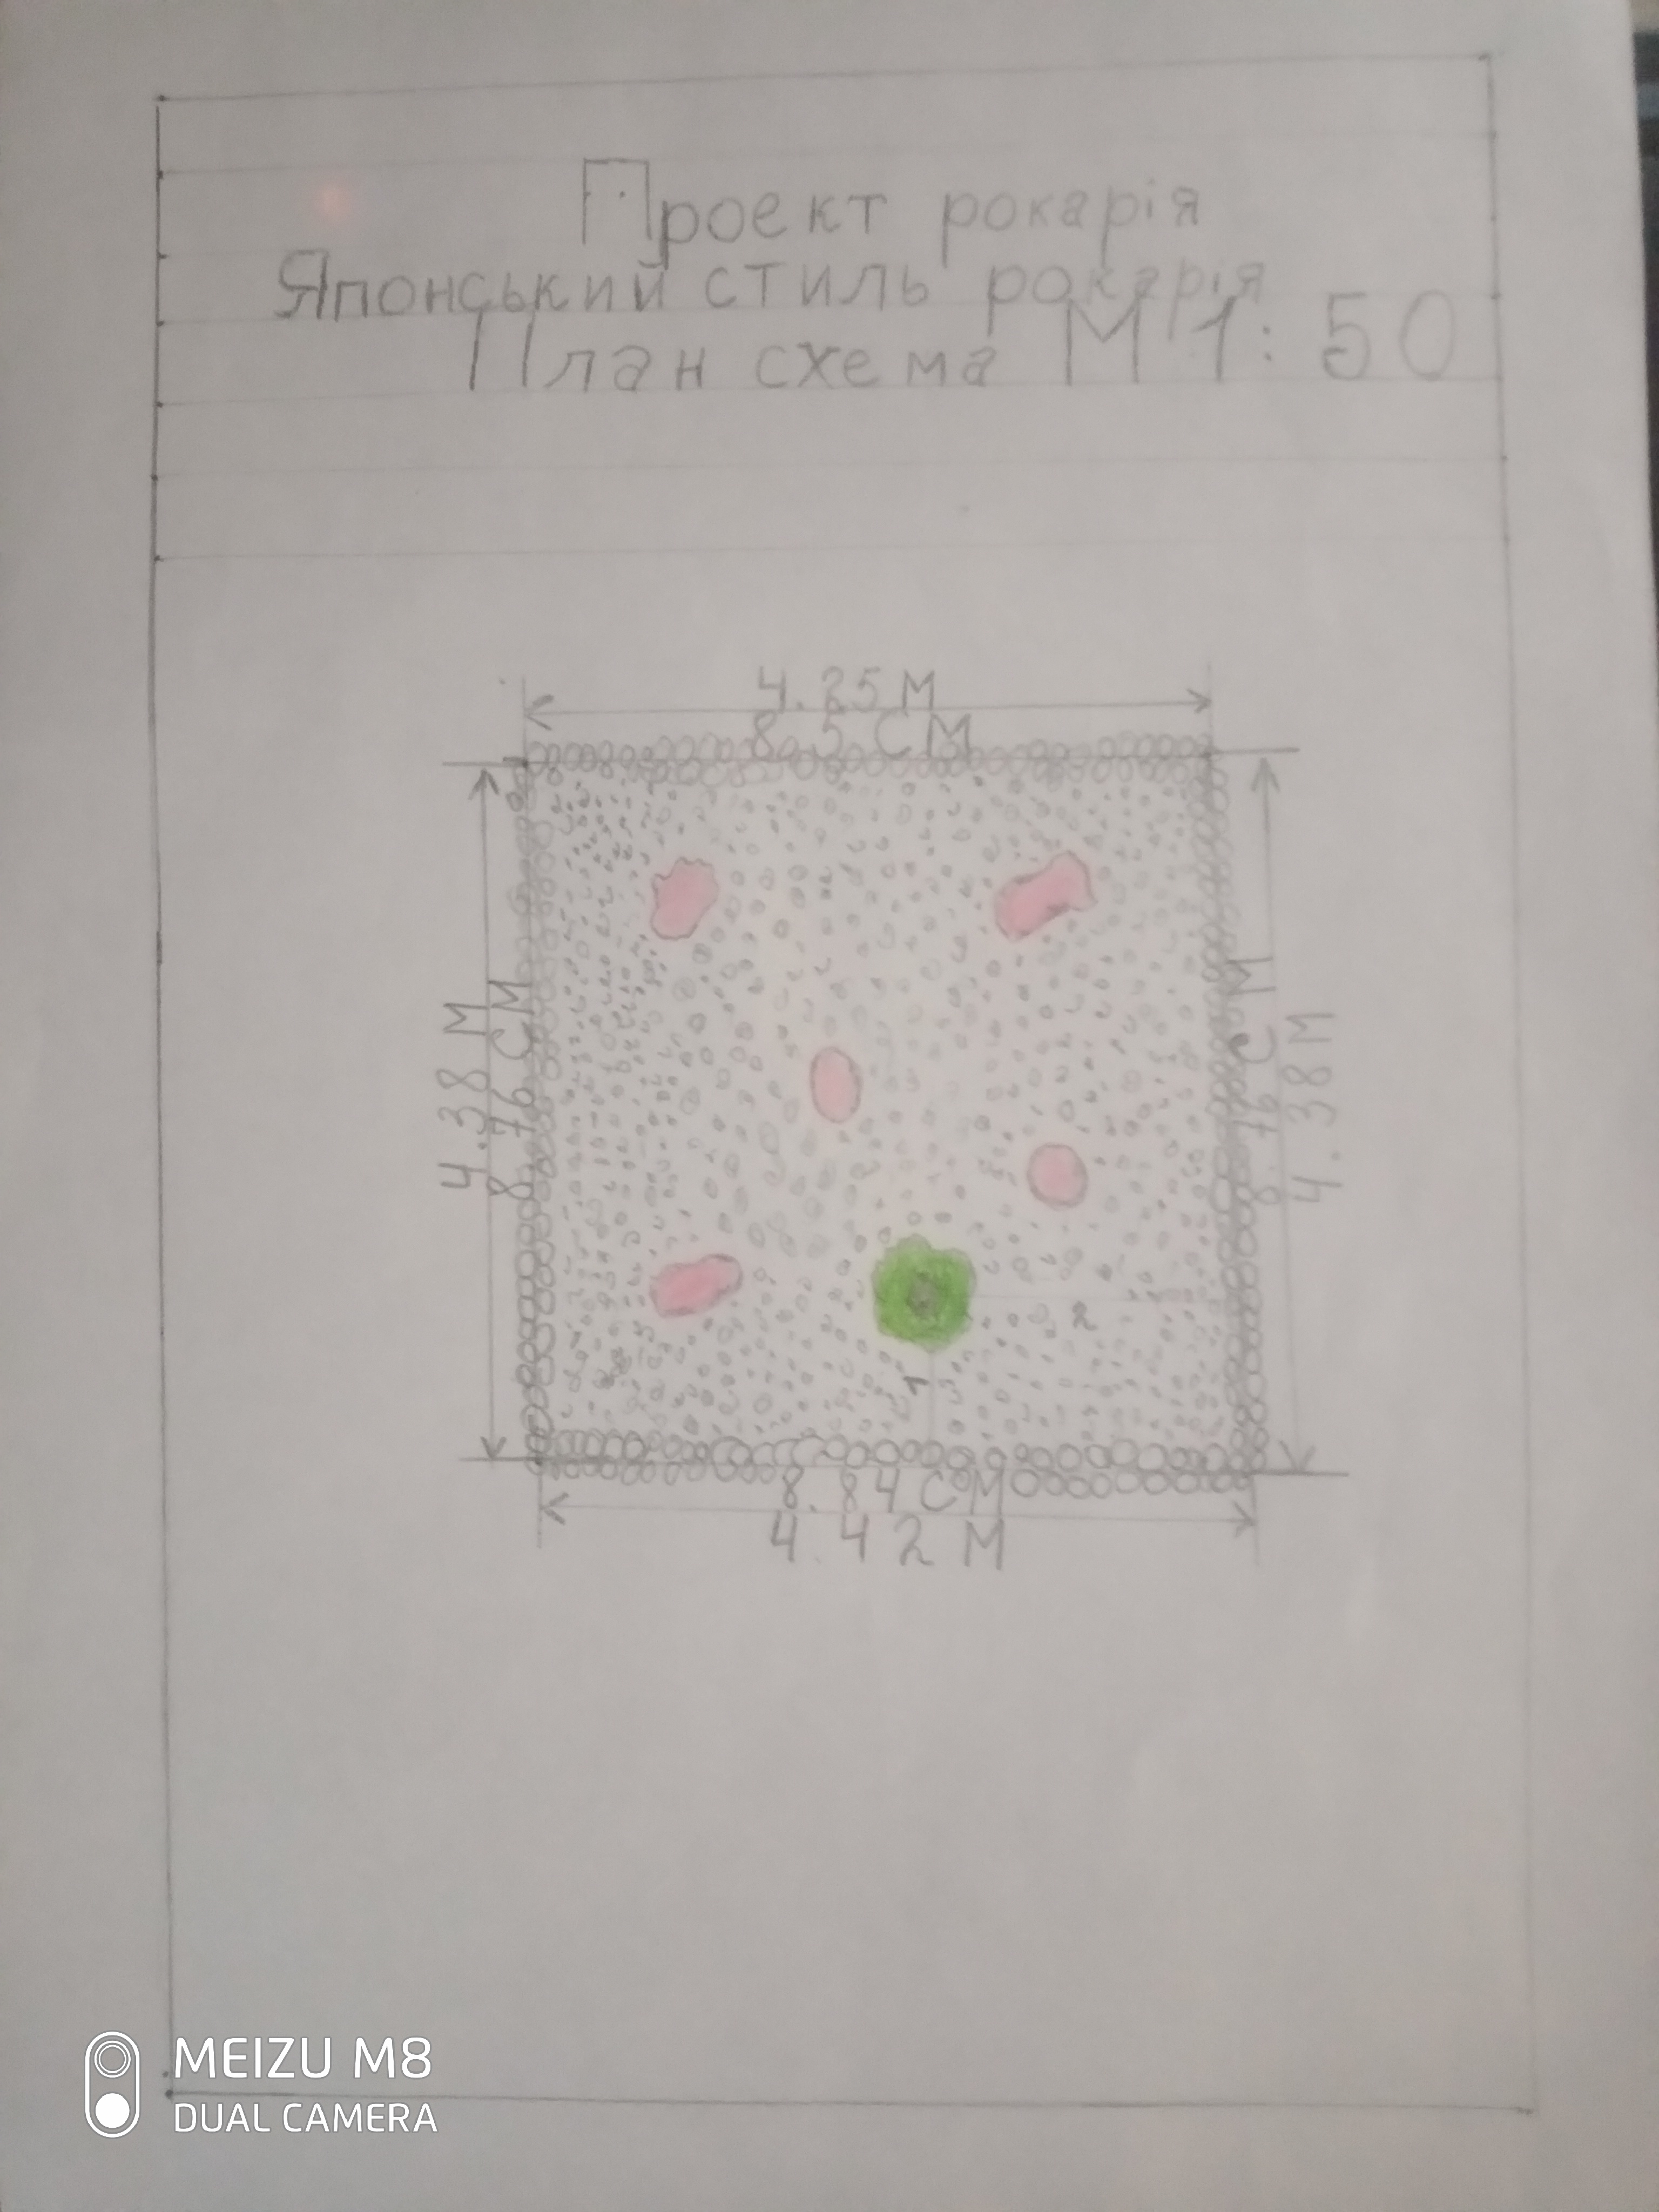 Проект рокарія
Японський стиль рокарія
План схема М 1:50
4.25 М
8.5 СМ
4.38 М
8.76 СМ
8.76 СМ
4.38 М
2
1
8.84 СМ
4.42 М
MEIZU M8
DUAL CAMERA